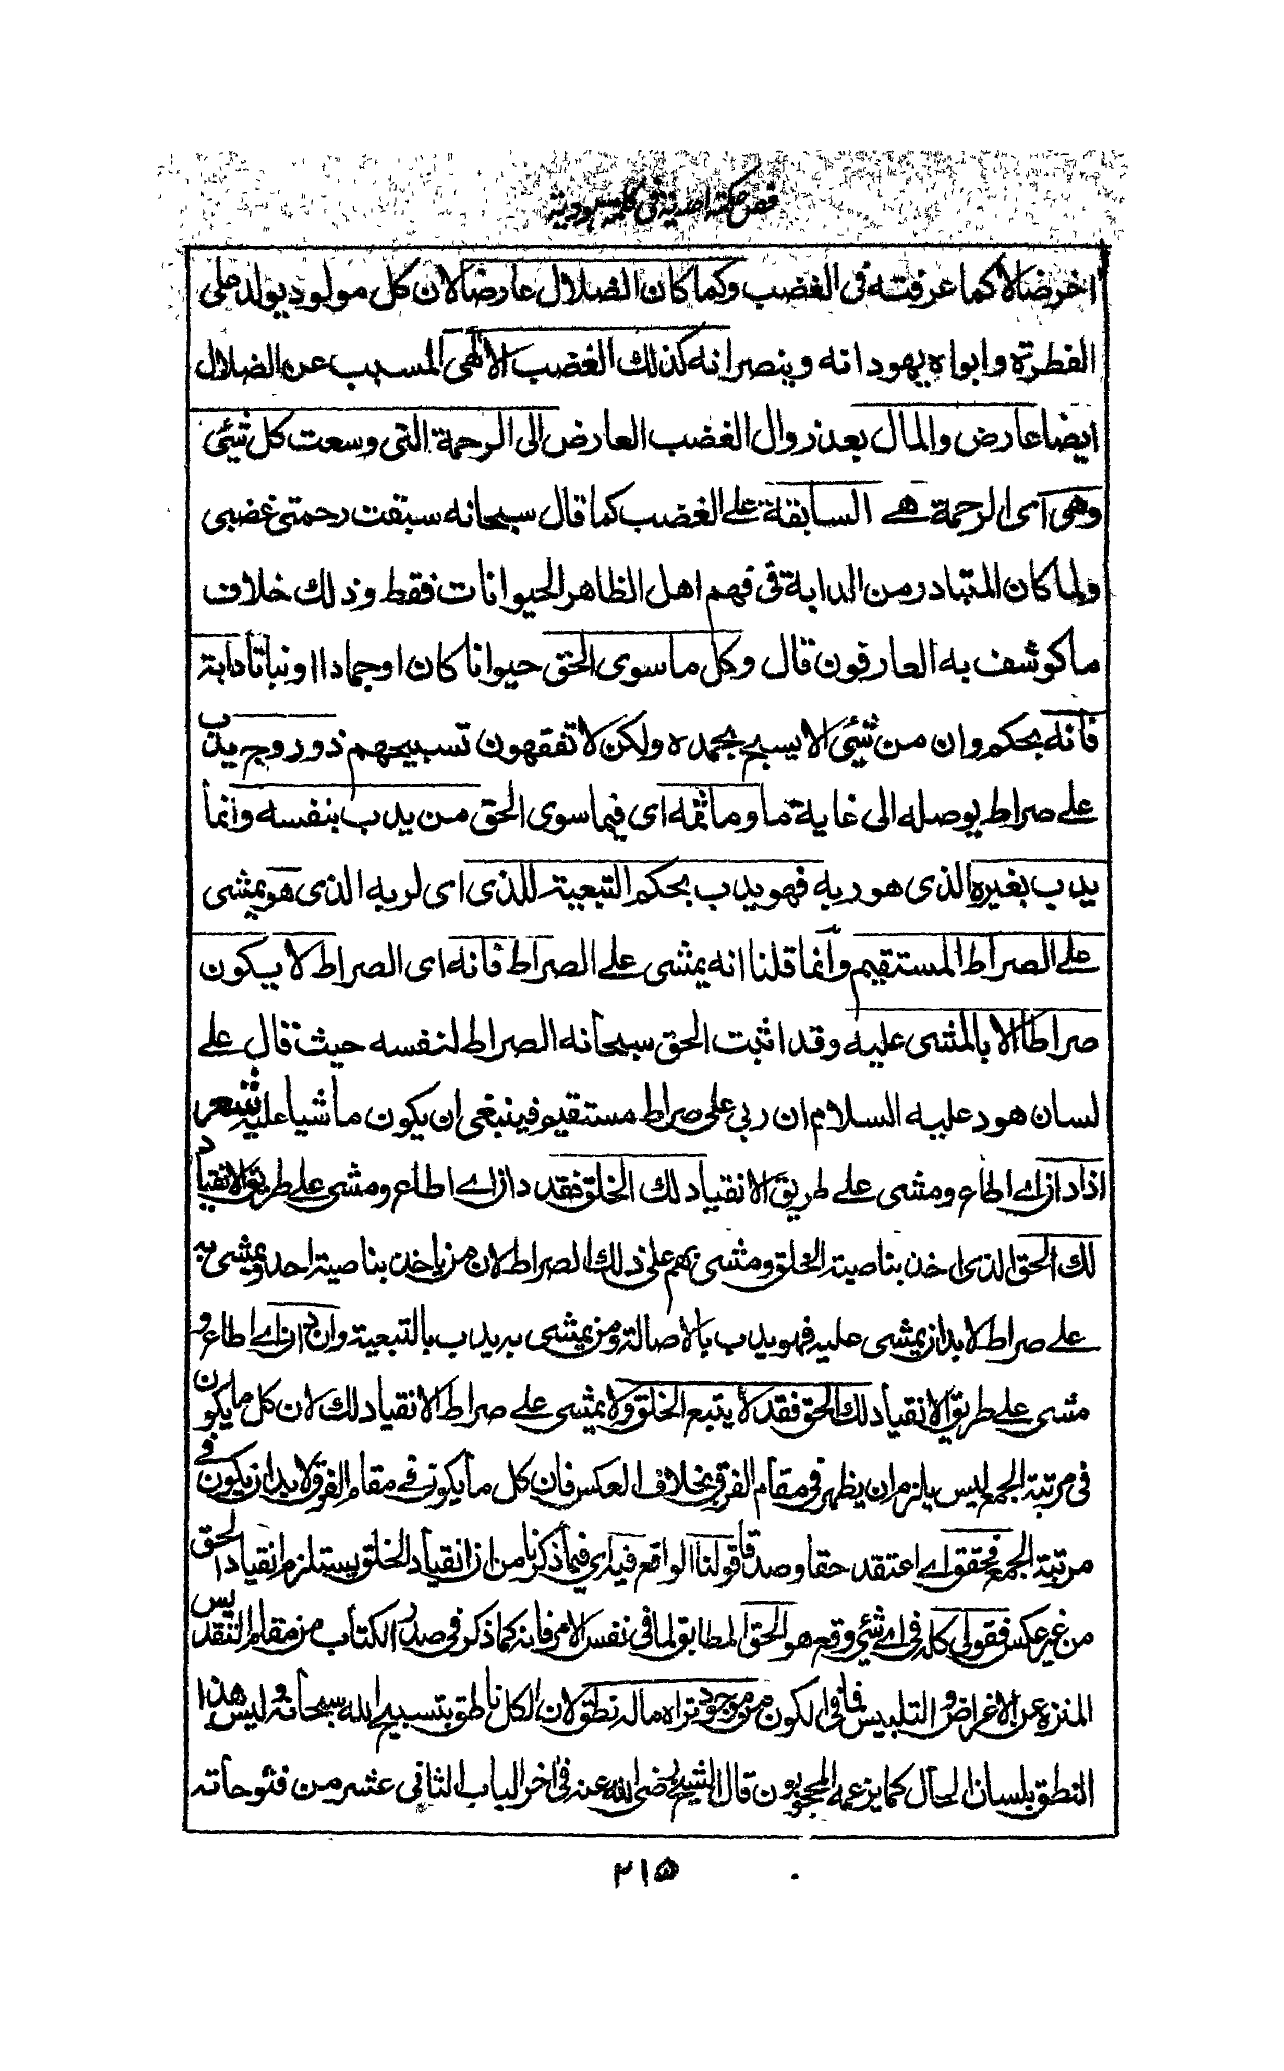 فص حكمة احدية في كلمة هودية
اخر ضالا كما عرفته في الغضب وكما كان الضلال عارضا لان كل مولود يولد على
الفطرة وابواه يهودانه وينصرانه كذلك الغضب الالهى المسبب عن الضلال
ايضا عارض والمال بعد زوال الغضب العارض الى الرحمة التى وسعت كل شئى
وهى اى الرحمة هے السابقة علے الغضب كما قال سبحانه سبقت رحمتى غضبى
ولما كان المتبادر من الدابة فى فهم اهل الظاهر الحيوانات فقط وذلك خلاف
ما كوشف به العارفون قال وكل ما سوى الحق حيوانا كان او جمادا او نباتا دابة
فانه بحكم وان من شئى الا يسبح بحمده ولكن لا تفقهون تسبيحهم ذو روح يدب
علے صراط يوصله الى غاية ما وما ثمه اى فيما سوى الحق من يدب بنفسه وانما
يدب بغيره الذى هو ربه فهو يدب بحكم التبعية للذى اى لربه الذى هو يمشى
علے الصراط المستقيم وانما قلنا انه يمشى علے الصراط فانه اى الصراط لا يكون
صراطا الا بالمشى عليه وقد اثبت الحق سبحانه الصراط لنفسه حيث قال علے
لسان هود عليه السلام ان ربى على صراط مستقيم فينبغى ان يكون ماشيا عليه شعر
اذا دان اے اطاع ومشى علے طريق الانقياد لك الخلق فقد دان اے اطاع ومشى علے طريق الانقياد
لك الحق الذى اخذ بناصية الخلق ومشى بهم على ذلك الصراط لان من ياخذ بناصية احد ويمشى به
علے صراط لابد ان يمشى عليه فهو يدب بالاصالة ومن يمشى به يدب بالتبعية وان دان اے اطاع و
مشى علے طريق الانقياد لك الحق فقد لا يتبع الخلق ولا يمشى علے صراط الانقياد لك لان كل ما يكون
فى مرتبة الجمع ليس يلزم ان يظهر فى مقام الفرق بخلاف العكس فان كل ما يكون فے مقام الفرق لابد ان يكون فے
مرتبة الجمع فحقق اے اعتقد حقا وصدقا قولنا الواقع فيه اى فيما ذكرنا من ان انقياد الخلق يستلزم انقياد الحق
من غير عكس فقولى كله فى اے شئى وقع هو الحق المطابق لما فى نفس الامر فانه كما ذكر فى صدر الكتاب من مقام التقديس
المنزه عن الاغراض والتلبيس فما فى الكون من موجود تراه ما له نطق لان الكل ناطق بتسبيح الله سبحانه وليس هذا
النطق بلسان الحال كما يزعمه المحجوبون قال الشيخ رضى الله عنه فى اخر الباب الثانى عشر من فتوحاته
٢١٥